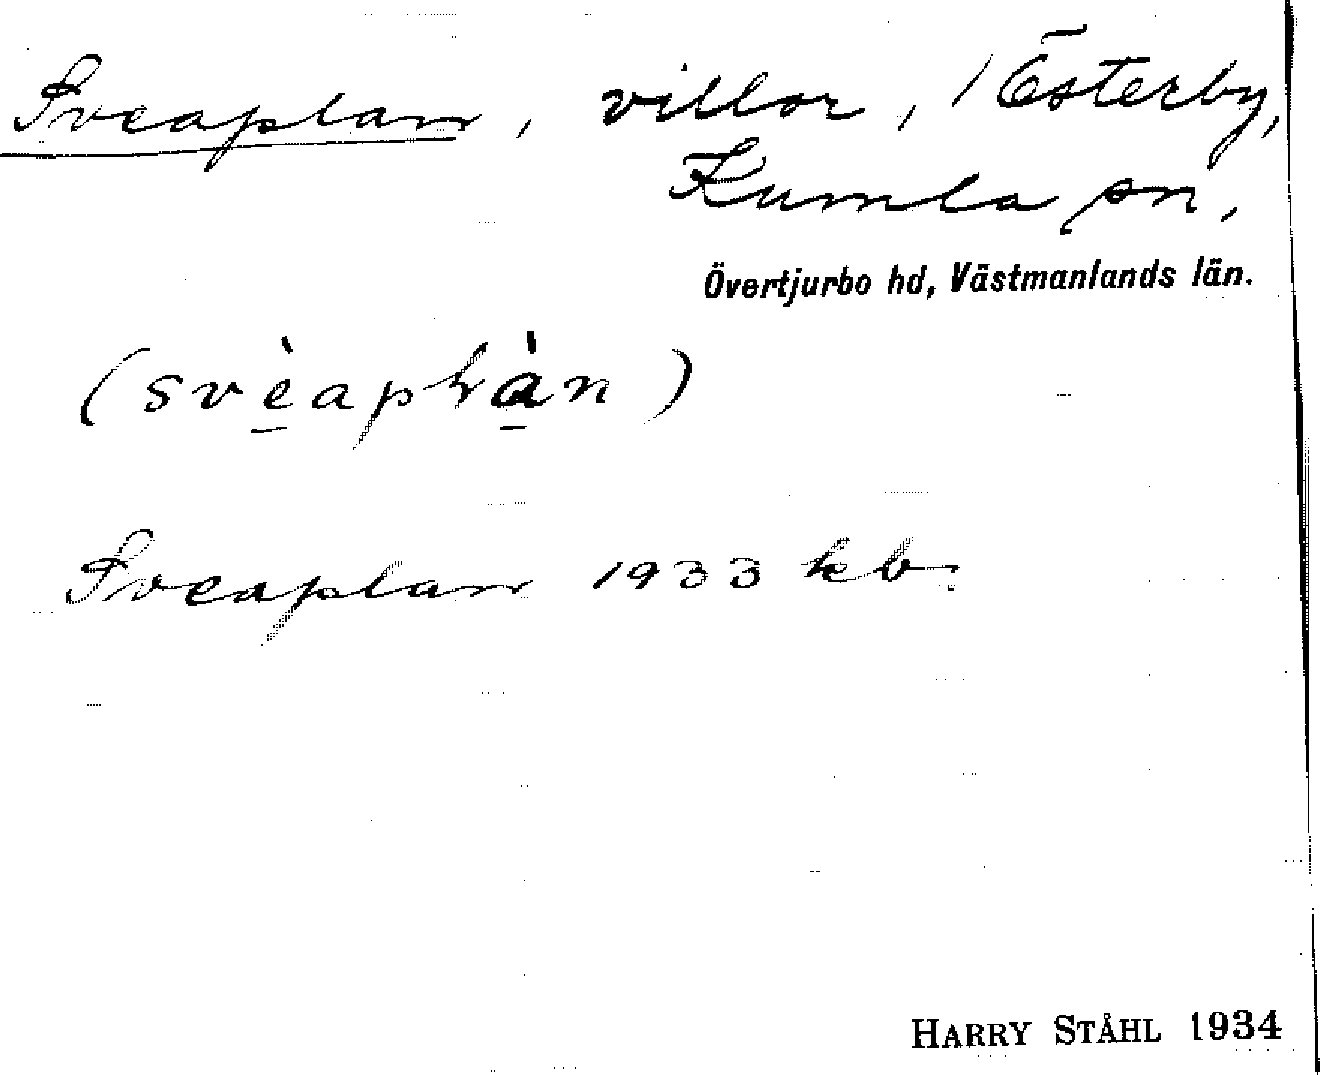 Sveaplan, villor, 1 Österby,
Kumla sn,
Övertjurbo hd, Västmanlands län.
(svèaplàn)
Sveaplan 1933 kb.
HARRY STÅHL 1934